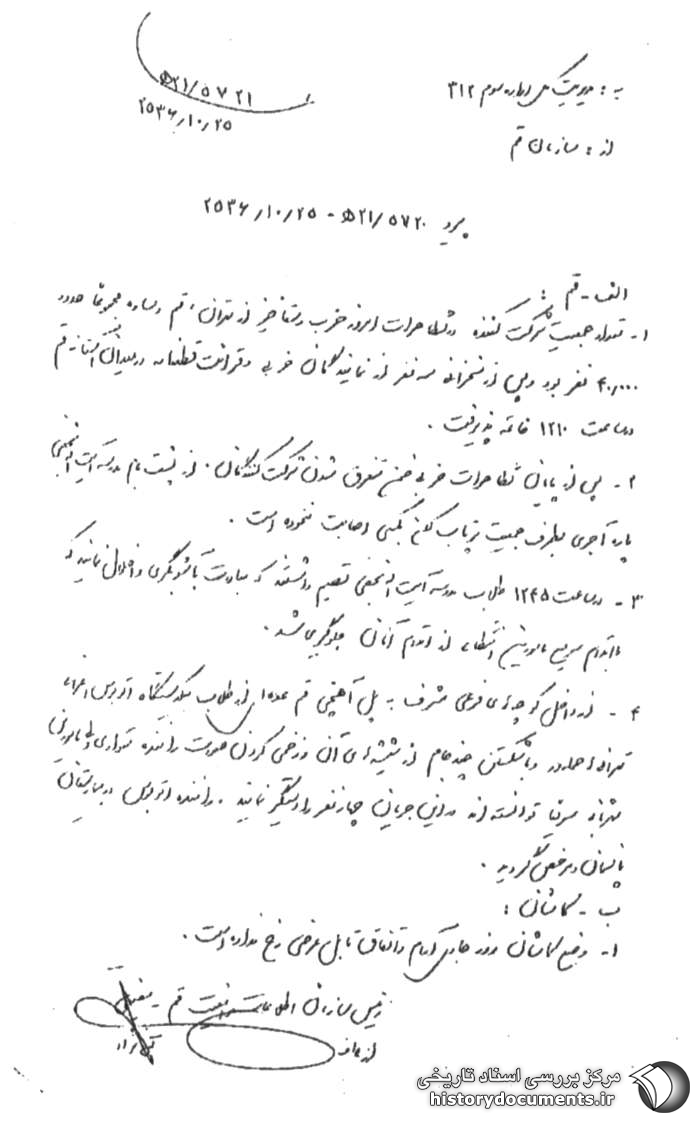 ۲۱/۵۷۲۱
۲۵۳۶/۱۰/۲۵
به : مدیریت کل اداره سوم ۳۱۲
از : سازمان قم
پیرو ۲۱/۵۷۲۰ - ۲۵۳۶/۱۰/۲۵
الف - قم :
۱- تعداد جمعیت شرکت کننده در تظاهرات امروز حزب رستاخیز از تهران ، قم و ساوه مجموعاً حدود
۴۰,۰۰۰ نفر بود و پس از سخنرانی سه نفر از نمایندگان حزبی و قرائت قطعنامه در میدان قم
در ساعت ۱۲۱۰ خاتمه پذیرفت .
۲- پس از پایان تظاهرات حزبی ضمن متفرق شدن شرکت کنندگان ، از پشت بام مدرسه آیت اله نجفی
پاره آجری بطرف جمعیت پرتاب لکن بکسی اصابت ننموده است .
۳- در ساعت ۱۲۴۵ طلاب مدرسه آیت اله نجفی تصمیم داشتند که مبادرت به آشوبگری و اخلال نمایند که
با اقدام سریع مامورین انتظامی از اقدام آنان جلوگیری شد .
۴- از داخل کوچه‌های فرعی مشرف به پل آهنچی قم عده‌ای از طلاب بیکدستگاه اتوبوس اعزامی
تهران حمله‌ور و با شکستن چند جام از شیشه‌های آن و زخمی کردن صورت راننده متواری ولی مامورین
شهربانی سریعاً توانسته‌اند در این جریان چهار نفر را دستگیر نمایند . راننده اتوبوس در بیمارستان
پانسمان و مرخص گردید .
ب - کاشان :
۱- وضع کاشان در روز جاری آرام و اتفاق قابل عرضی رخ نداده است .
رئیس سازمان اطلاعات و امنیت قم -
از طرف
مرکز بررسی اسناد تاریخی
historydocuments.ir